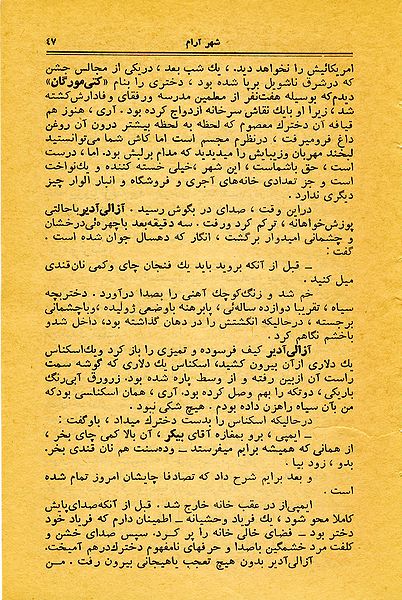 شهر آرام
۴۷
امریکائیش را نخواهد دید. ، یك شب بعد ، دریکی از مجالس جشن
که درشرق ناشویل برپا شده بود ، دختری را بنام «کتی‌مورگان»
دیدم‌که بوسیله هفت‌نفر از معلمین مدرسه ورفقای وفادارش‌کشته
شد ، زیرا او بایك نقاش سرخانه ازدواج کرده بود. آری ، هنوز هم
قیافه آن دخترك معصوم که لحظه به لحظه بیشتر درون آن روغن
داغ فرومیرفت ، درنظرم مجسم است اما کاش شما می‌توانستید
لبخند مهربان وزیبایش را میدیدید که مدام برلبش بود. اما ، درست
است ، حق باشماست ، این شهر ،خیلی خسته کننده و یك‌نواخت
است و جز تعدادی خانه‌های آجری و فروشگاه و انبار الوار چیز
دیگری ندارد .
دراین وقت ، صدای در بگوش رسید . آزالی‌آدیر باحالتی
پوزش‌خواهانه ، ترکم کرد ورفت . سه دقیقه‌بعد باچهره‌ئی‌درخشان
و چشمانی امیدوار برگشت ، انگار که ده‌سال جوان شده است .
گفت :
ــ قبل از آنکه بروید باید یك فنجان چای وکمی نان‌قندی
میل کنید .
خم شد و زنگ‌کوچك آهنی را بصدا درآورد . دختربچه
سیاه ، تقریبا دوازده ساله‌ئی ، پابرهنه باوضعی ژولیده ،وباچشمانی
برجسته ، درحالیکه انگشتش را در دهان گذاشته بود، داخل شدو
باخشم نگاهم کرد .
آزالی‌آدیر کیف فرسوده و تمیزی را باز کرد ویك‌اسکناس
یك دلاری ازآن بیرون کشید، اسکناس یك دلاری که گوشه سمت
راست آن ازبین رفته و از وسط پاره شده بود. زرورق آبی‌رنگ
باریکی ، دوتکه را بهم وصل کرده بود. آری ، همان اسکناسی بودکه
من بآن سیاه راهزن داده بودم . هیچ شکی نبود .
درحالیکه اسکناس را بدست دخترك میداد ، باوگفت :
ــ ایمپی ، برو بمغازه آقای بیکر ، آن بالا کمی چای بخر ،
از همانی که همیشه برایم میفرستد ــ وده‌سنت هم نان قندی بخر.
بدو ، زود بیا .
و بعد برایم شرح داد که تصادفا چایشان امروز تمام شده
است .
ایمپی‌از در عقب خانه خارج شد . قبل از آنکه‌صدای‌پایش
کاملا محو شود ، یك فریاد وحشیانه ــ اطمینان دارم که فریاد خود
دختر بود ــ فضای خالی خانه را پر کرد. سپس صدای خشن و
کلفت مرد خشمگین باصدا و حرفهای نامفهوم دخترك‌درهم آمیخت.
آزالی‌آدیر بدون هیچ تعجب یاهیجانی بیرون رفت . مـن